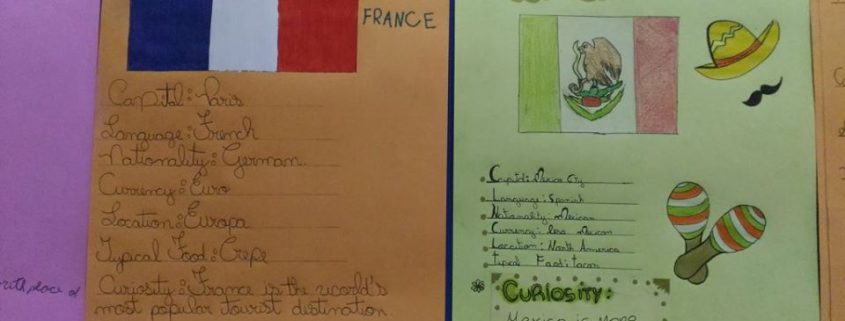 FRANCE
Capital: Paris
Language: French
Nationality: German
Currency: Euro
Location: Europa
Typical Food: Crepe
Curiosity: France is the world's
most popular tourist destination.
Capital: Mexico City
Language: Spanish
Nationality: Mexican
Currency: Mexican
Location: North America
Typical Food: tacos
CURIOSITY:
Mexico is
place of